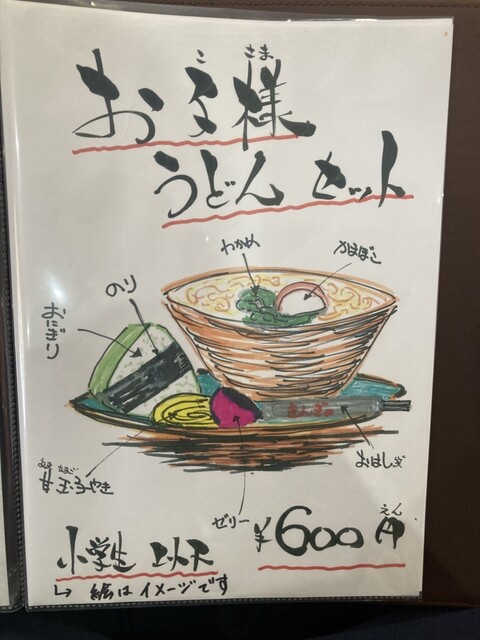 お子様
こ さま
うどん セット
わかめ
かまぼこ
のり
おにぎり
あま たまご
甘玉子やき
ゼリー
おはし
¥600円
えん
小学生 以下
↳ 絵はイメージです